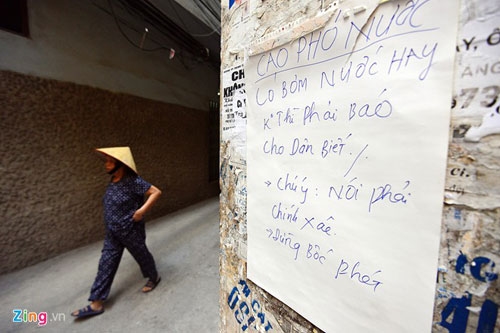 CAO PHÓ NƯỚC
CÓ BƠM NƯỚC HAY
K° THÌ PHẢI BÁO
CHO DÂN BIẾT ./.
→ CHÚ Ý: NÓI PHẢI
CHÍNH XÁC.
→ ĐỪNG BỐC PHÉT
Zing.vn